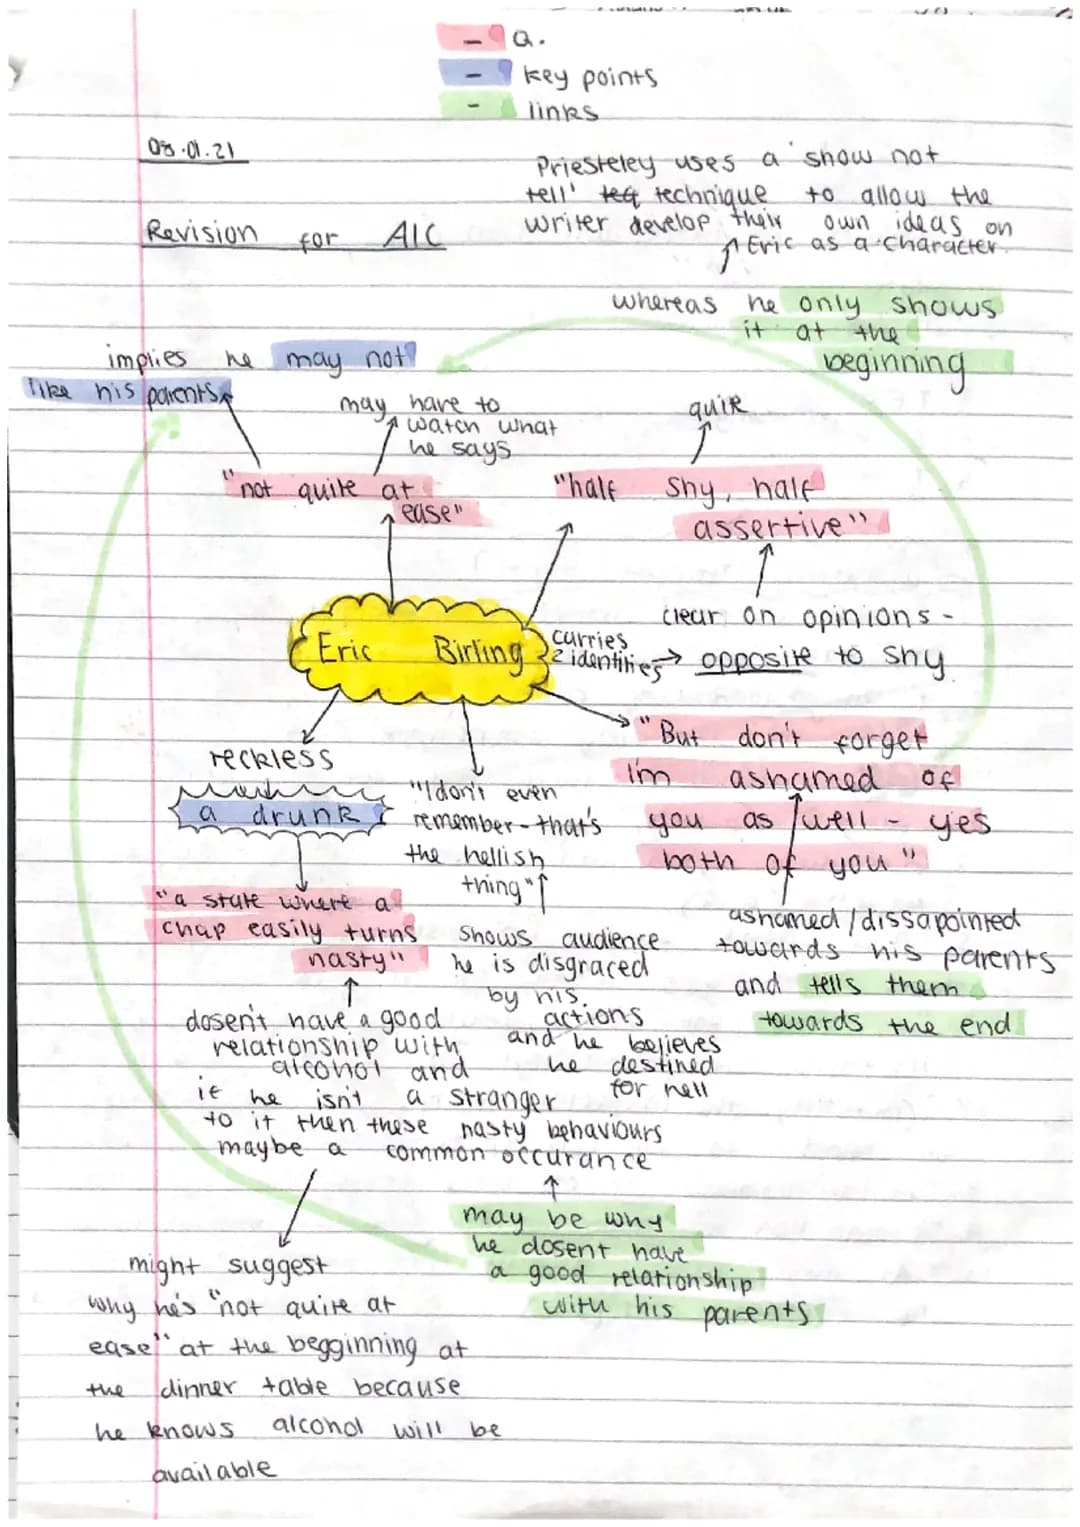 - Q.
- key points
- links
08.01.21
Priesteley uses a 'show not
tell' teq technique to allow the
writer develop their own ideas on
Eric as a character.
Revision for AIC
whereas he only shows
it at the
beginning
implies he may not
like his parents
may have to
watch what
he says
quite
"not quite at
ease"
"half shy, half
assertive"
clear on opinions -
opposite to shy
Eric Birling
carries
2 identities
"But don't forget
i'm ashamed of
you as well - yes
both of you"
reckless
a drunk
"I don't even
remember - that's
the hellish
thing"
"a state where a
chap easily turns
nasty"
shows audience
he is disgraced
by his
actions
and he believes
he destined
for hell
ashamed/dissapointed
towards his parents
and tells them
towards the end
dosen't have a good
relationship with
alcohol and
if he isn't a stranger
to it then these nasty behaviours
maybe a common occurance
may be why
he dosent have
a good relationship
with his parents
might suggest
why he's "not quite at
ease" at the begginning at
the dinner table because
he knows alcohol will be
available